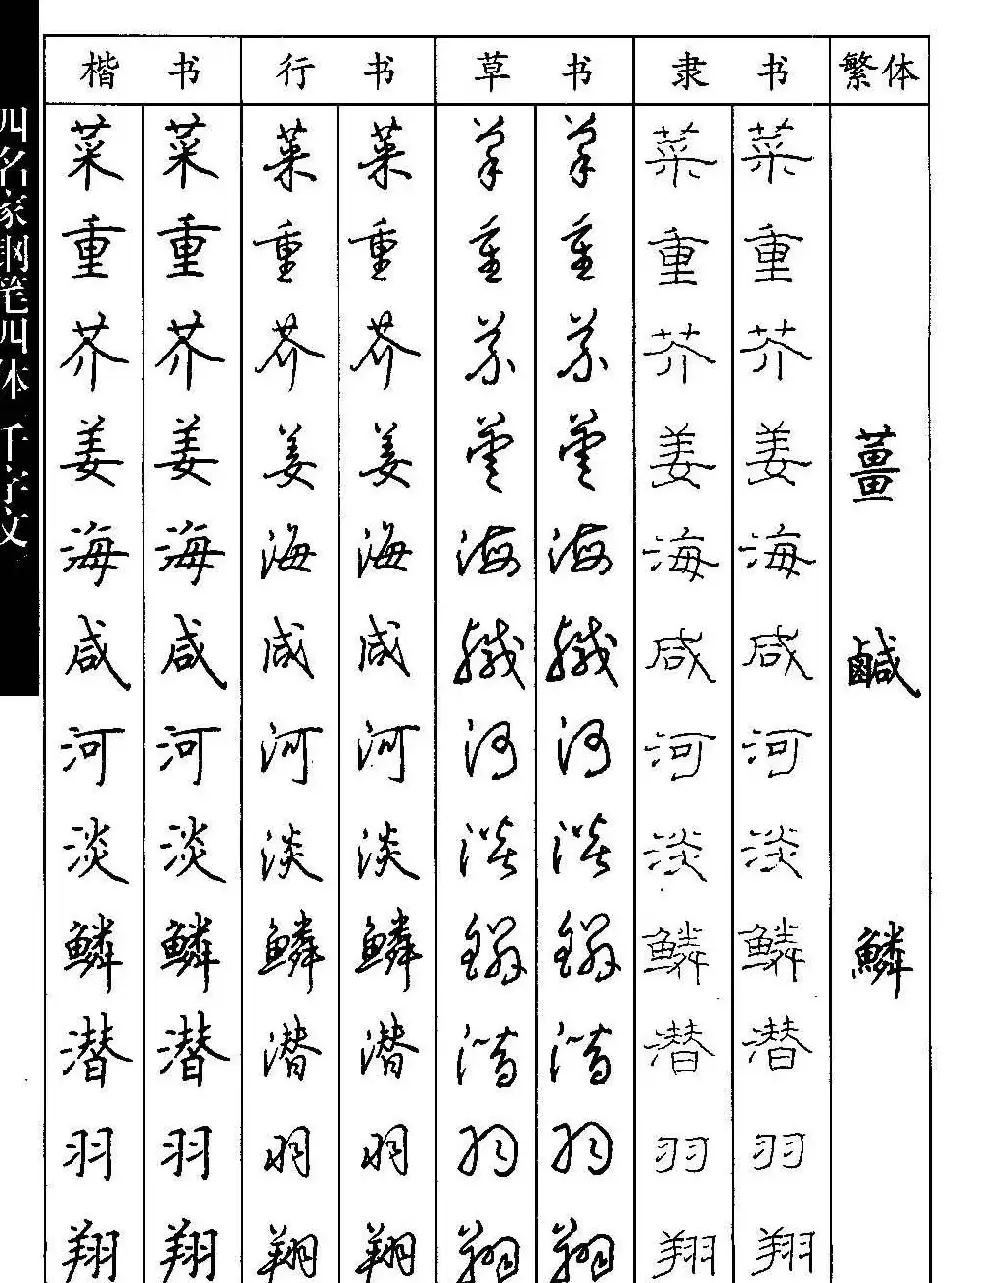 四名家钢笔四体 千字文
楷书 行书 草书 隶书 繁体
菜 菜 菜 菜 菜 菜 菜 菜
重 重 重 重 重 重 重 重
芥 芥 芥 芥 芥 芥 芥 芥
姜 姜 姜 姜 姜 姜 姜 姜 薑
海 海 海 海 海 海 海 海
咸 咸 咸 咸 鹹 鹹 咸 咸 鹹
河 河 河 河 河 河 河 河
淡 淡 淡 淡 淡 淡 淡 淡
鳞 鳞 鳞 鳞 鳞 鳞 鳞 鳞 鱗
潜 潜 潜 潜 潜 潜 潜 潜
羽 羽 羽 羽 羽 羽 羽 羽
翔 翔 翔 翔 翔 翔 翔 翔